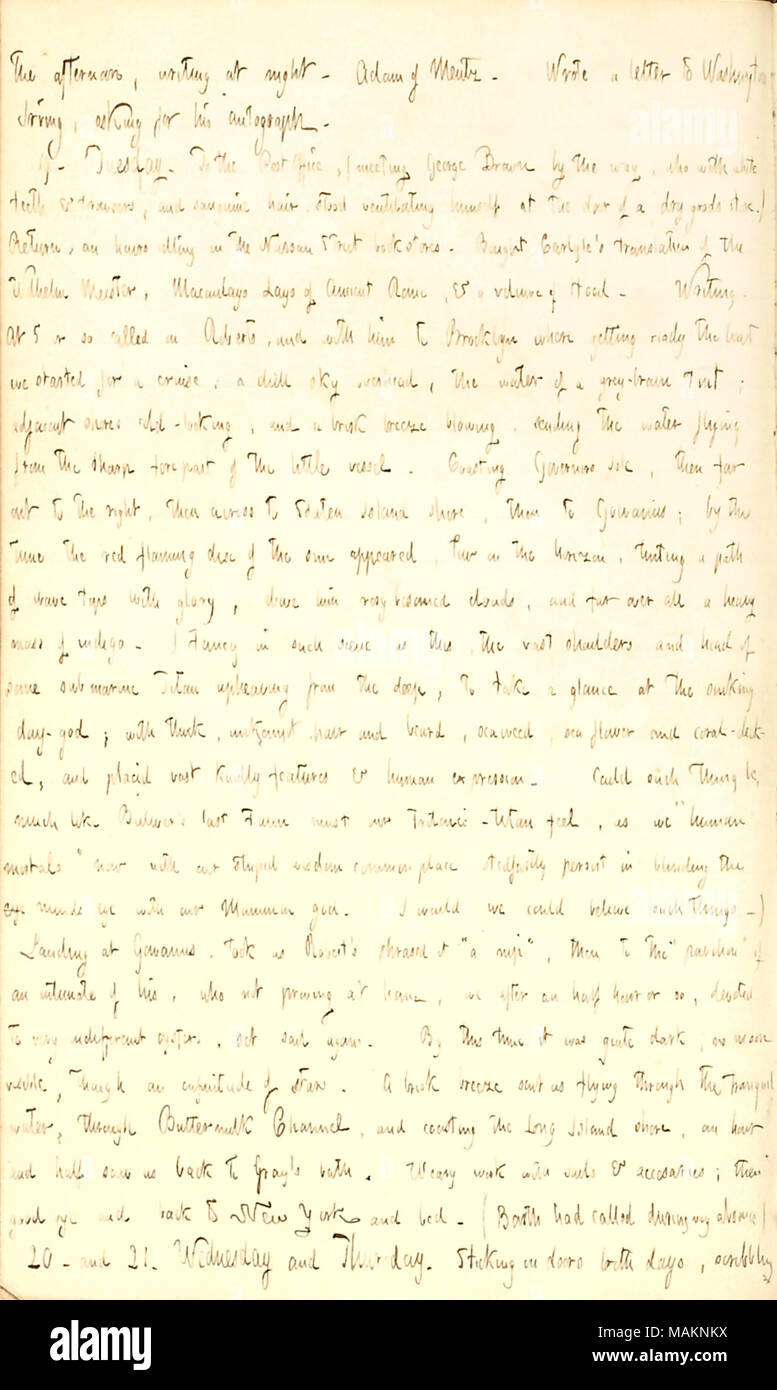 The afternoon, writing at night. Adam of Mentz. Wrote a letter to Washington
Irving, asking for his autograph.
9. Tuesday. To the Post Office, (meeting George Brown by the way, who with white
teeth & trowsers, and sanguine hair stood ventilating himself at the door of a dry goods store.)
Return, an hours idling in the Nassau Street book stores. Bought Carlyle's translation of the
Wilhelm Meister, Macaulays Lays of Ancient Rome, & a volume of Hood. Writing.
At 5 or so called on Roberts, and with him to Brooklyn where getting ready the boat
we started for a cruise; a dull sky overhead, the water of a grey-brown tint;
adjacent shores cold-looking, and a brisk breeze blowing, sending the water flying
from the sharp fore part of the little vessel. Coasting Governors Isle, then far
out to the right, then across to Staten Island shore, then to Gowanus; by this
time the red flaming disc of the sun appeared, low in the horizon, tinting a path
of wave tops with glory, above him rosy bosomed clouds, and far over all a heavy
mass of indigo. (Fancy in such scene as this, the vast shoulders and head of
some submarine Titan upheaving from the deep, to take a glance at the sinking
day-god; with thick, unkempt hair and beard, sea weed, sea flower and coral-deck-
ed, and placid vast kindly features & human expression. Could such thing be,
much like Bulwers last Faun must our Titan feel, as we "human
mortals" now with our stupid wisdom common place stedfastly persist in blinding the
minds eye with our Mammon gou. I would we could believe such things.)
Landing at Gowanus, took as Robert's phrased it "a nip", then to the "pavilion" of
an intimate of his, who not proving at home, we after an half hour or so, devoted
to very indifferent oysters, set sail again. By this time it was quite dark, no moon
visible, though an infinitude of stars. A brisk breeze sent us flying through the tranquil
water, through Buttermilk Channel, and coasting the Long Island shore, an hour
and half saw us back to Gray's bath. Weary work with sails & accessaries; then
good bye and back to New York and bed. (Booth had called during my absence)
20. and 21. Wednesday and Thursday. Sticking in doors both days, scribbling
alamy
a
Image ID: MAKNKX
www.alamy.com